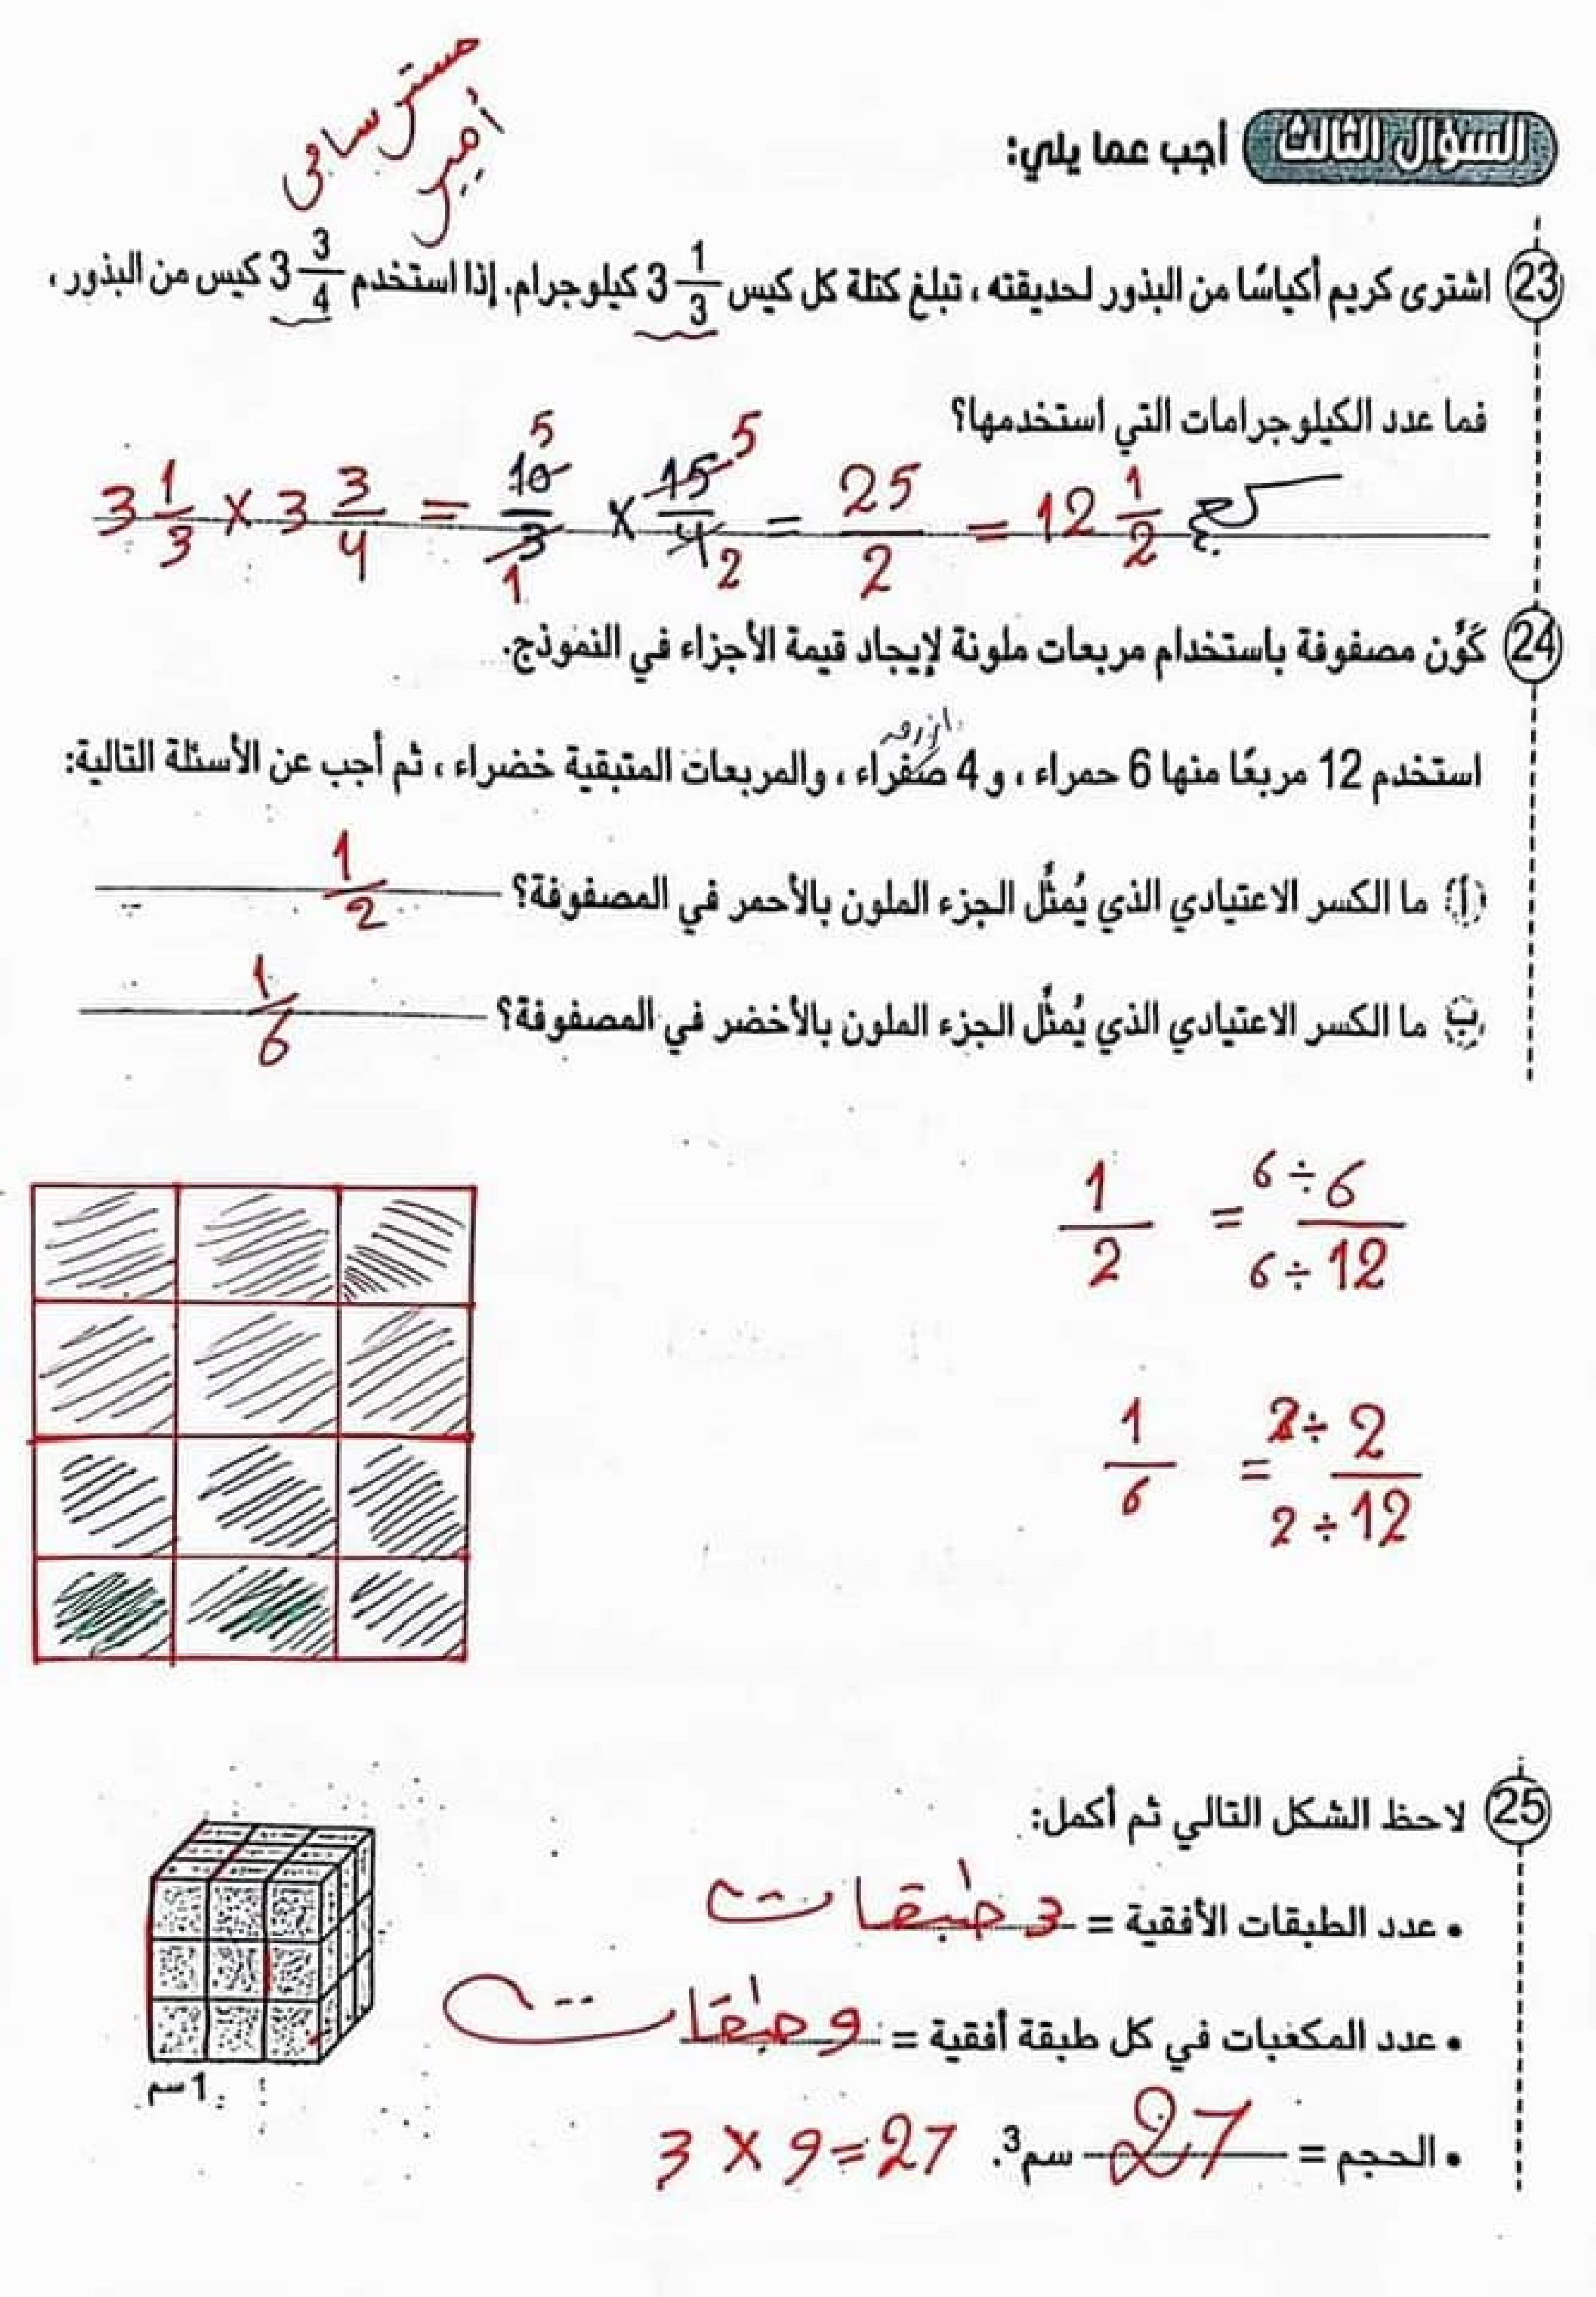 مستر سامى
أمير
السؤال الثالث أجب عما يلي:
23 اشترى كريم أكياسًا من البذور لحديقته ، تبلغ كتلة كل كيس 3 1/3 كيلوجرام. إذا استخدم 3 3/4 كيس من البذور ،
فما عدد الكيلوجرامات التي استخدمها؟
3 1/3 × 3 3/4 = 10/3 × 15/4 = 25/2 = 12 1/2 كج
5 5
1 2
24 كَوِّن مصفوفة باستخدام مربعات ملونة لإيجاد قيمة الأجزاء في النموذج.
استخدم 12 مربعًا منها 6 حمراء ، و 4 صفراء ، والمربعات المتبقية خضراء ، ثم أجب عن الأسئلة التالية:
أ ما الكسر الاعتيادي الذي يُمثِّل الجزء الملون بالأحمر في المصفوفة؟ 1/2
ب ما الكسر الاعتيادي الذي يُمثِّل الجزء الملون بالأخضر في المصفوفة؟ 1/6
1/2 = 6÷6 / 6÷12
1/6 = 2÷2 / 2÷12
25 لاحظ الشكل التالي ثم أكمل:
• عدد الطبقات الأفقية = 3 طبقات
• عدد المكعبات في كل طبقة أفقية = 9 طبقات
1 سم
• الحجم = 27 سم³. 3 × 9 = 27